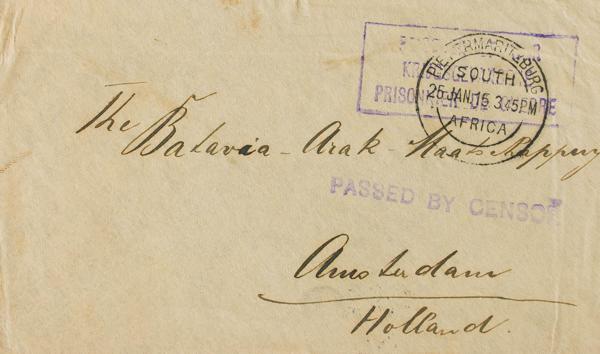 PRISONNIER DE GUERRE
PIETERMARITZBURG
SOUTH
25 JAN 15 3.45PM
AFRICA
The Batavia - Arak - Maatschappij
PASSED BY CENSOR
Amsterdam
Holland.